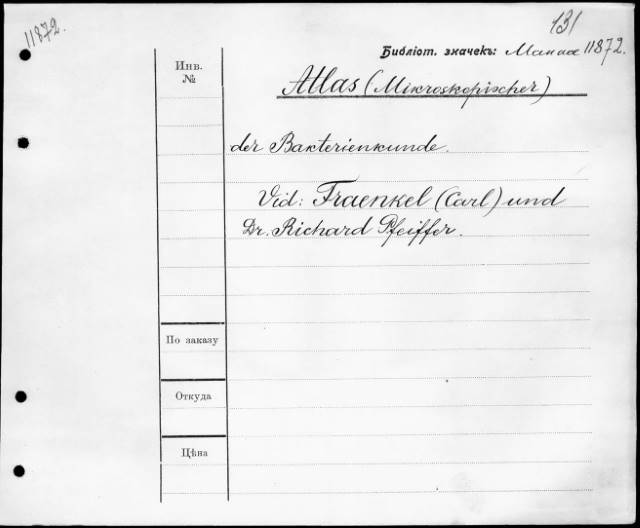 11872.
131
Библіот. значекъ: Манна 11872.
Инв.
№
Atlas (Mikroskopischer)
der Bakterienkunde.
Vid: Fraenkel (Carl) und
Dr. Richard Pfeiffer.
По заказу
Откуда
Цѣна